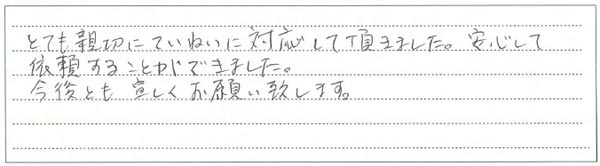 とても親切にていねいに対応して頂きました。安心して
依頼することができました。
今後とも宜しくお願い致します。